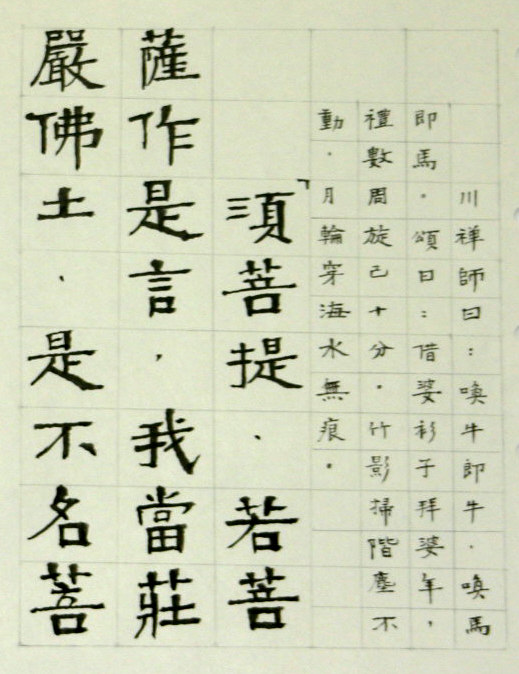 川禅師曰：喚牛即牛．喚馬
即馬。頌曰：借婆衫子拜婆年，
禮數周旋己十分。竹影掃階塵不
動．月輪穿海水無痕。
「須菩提．若菩
薩作是言，我當莊
嚴佛土．是不名菩